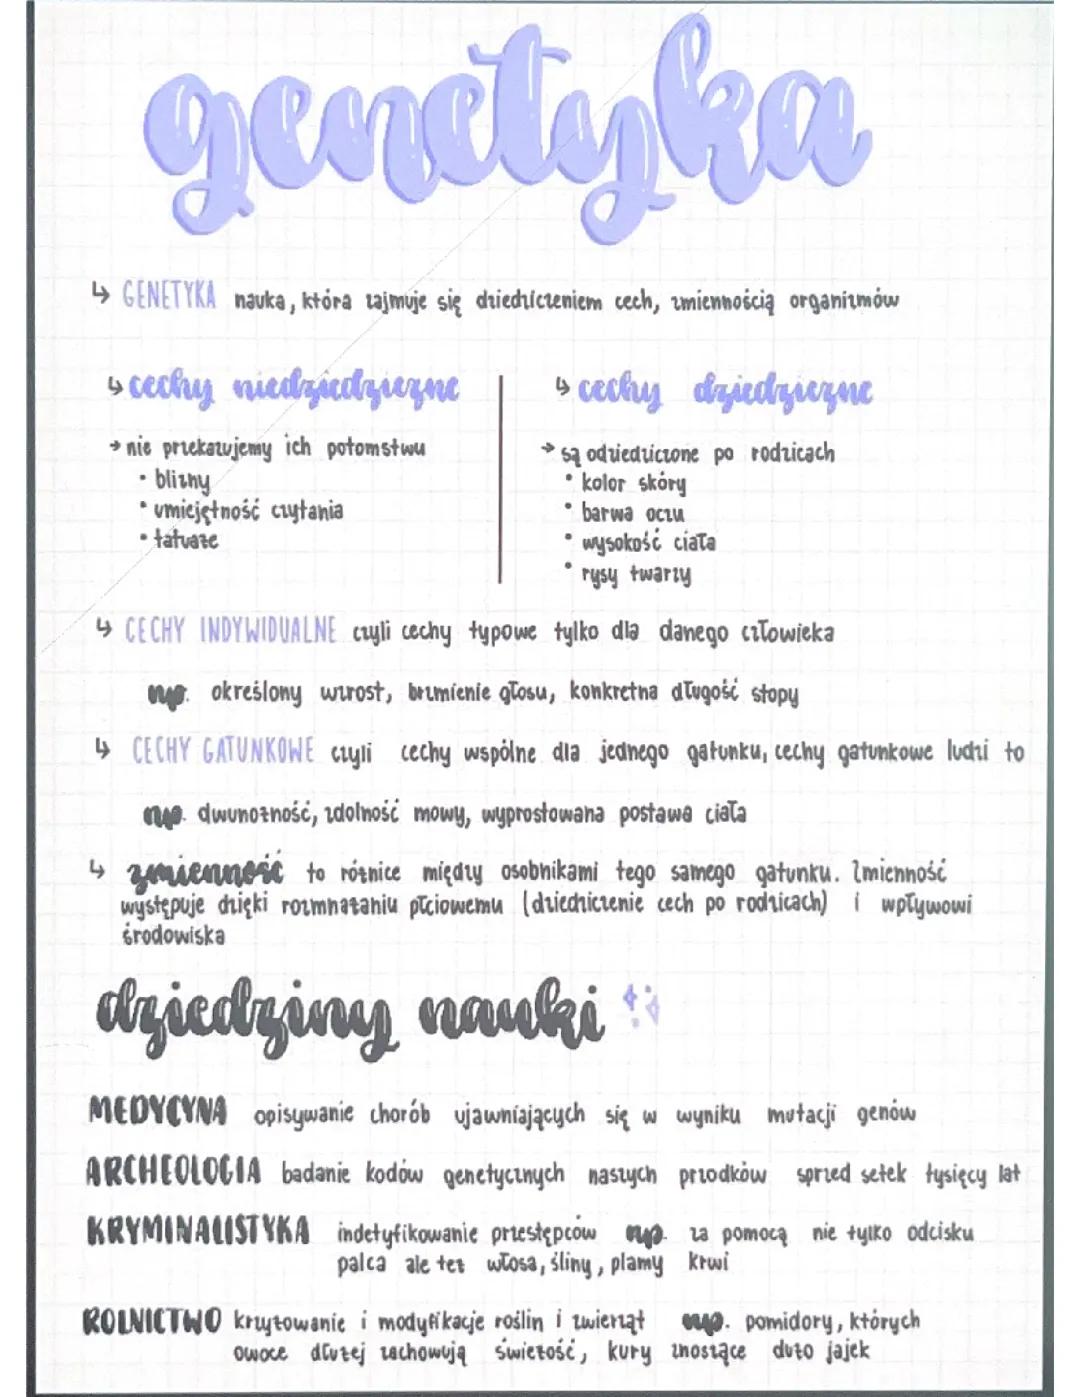 genetyka
↳ GENETYKA nauka, która zajmuje się dziedziczeniem cech, zmiennością organizmów
↳ cechy niedziedziczne
→ nie przekazujemy ich potomstwu
• blizny
• umiejętność czytania
• tatuaże
↳ cechy dziedziczne
→ są odziedziczone po rodzicach
• kolor skóry
• barwa oczu
• wysokość ciała
• rysy twarzy
↳ CECHY INDYWIDUALNE czyli cechy typowe tylko dla danego człowieka
np. określony wzrost, brzmienie głosu, konkretna długość stopy
↳ CECHY GATUNKOWE czyli cechy wspólne dla jednego gatunku, cechy gatunkowe ludzi to
np. dwunożność, zdolność mowy, wyprostowana postawa ciała
↳ zmienność to różnice między osobnikami tego samego gatunku. Zmienność
występuje dzięki rozmnażaniu płciowemu (dziedziczenie cech po rodzicach) i wpływowi
środowiska
dziedziny nauki
MEDYCYNA opisywanie chorób ujawniających się w wyniku mutacji genów
ARCHEOLOGIA badanie kodów genetycznych naszych przodków sprzed setek tysięcy lat
KRYMINALISTYKA indetyfikowanie przestępców np. za pomocą nie tylko odcisku
palca ale też włosa, śliny, plamy krwi
ROLNICTWO krzyżowanie i modyfikacje roślin i zwierząt np. pomidory, których
owoce dłużej zachowują świeżość, kury znoszące dużo jajek